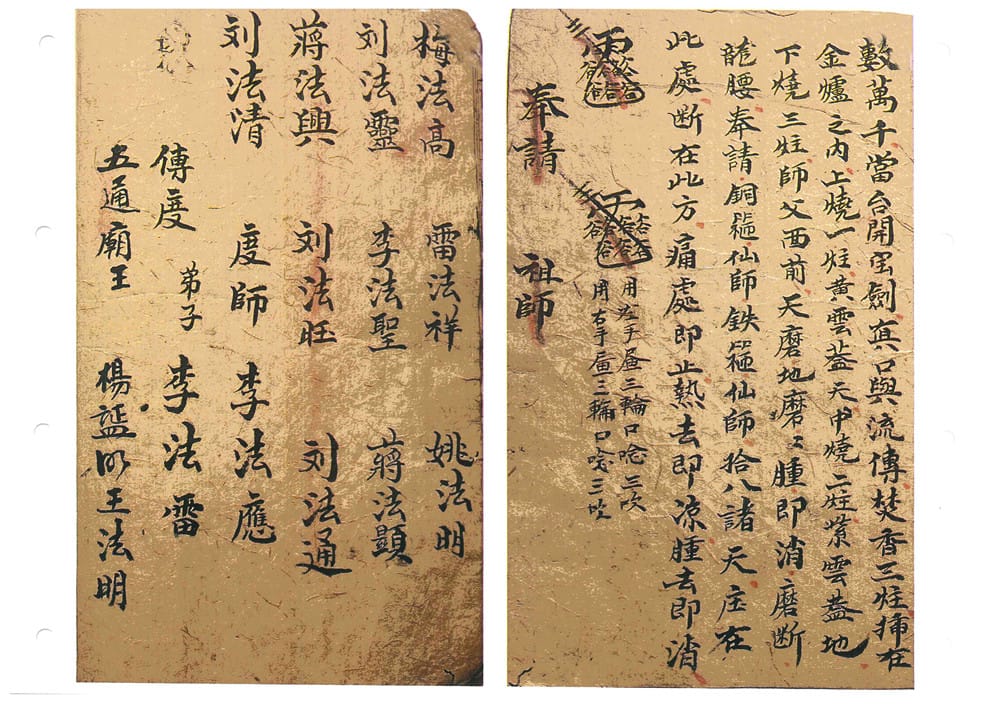 數萬千當台開宝劍真口與流傳焚香三炷揷在
金爐之內上燒一炷黃雲蓋天中燒二炷紫雲蓋地
下燒三炷師父西前天磨地磨〻腫即消磨断
龍腰奉請銅箍仙師鉄箍仙師拾八諸天庄在
此處断在此方痛處即止熱去即凉腫去即消
用左手 三輪口唸三吹
用右手 三輪口唸三吹
奉請 祖師
梅法高 雷法祥 姚法明
刘法靈 李法聖 蔣法顕
蔣法興 刘法旺 刘法通
刘法清 度師 李法應
傳度 弟子 李法雷
五通廟王 楊 王法明